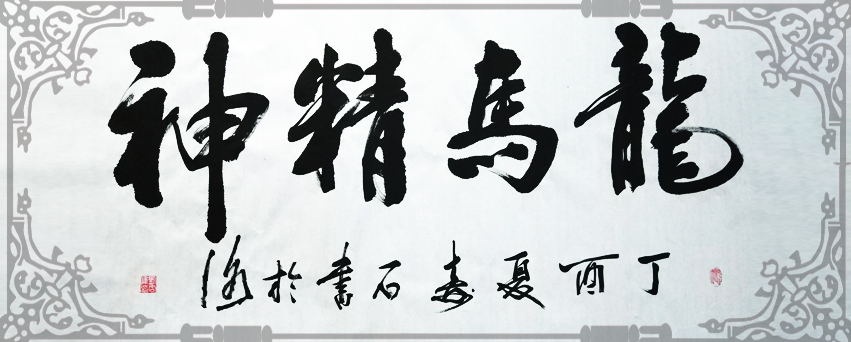 龍馬精神
丁酉夏寿石書於